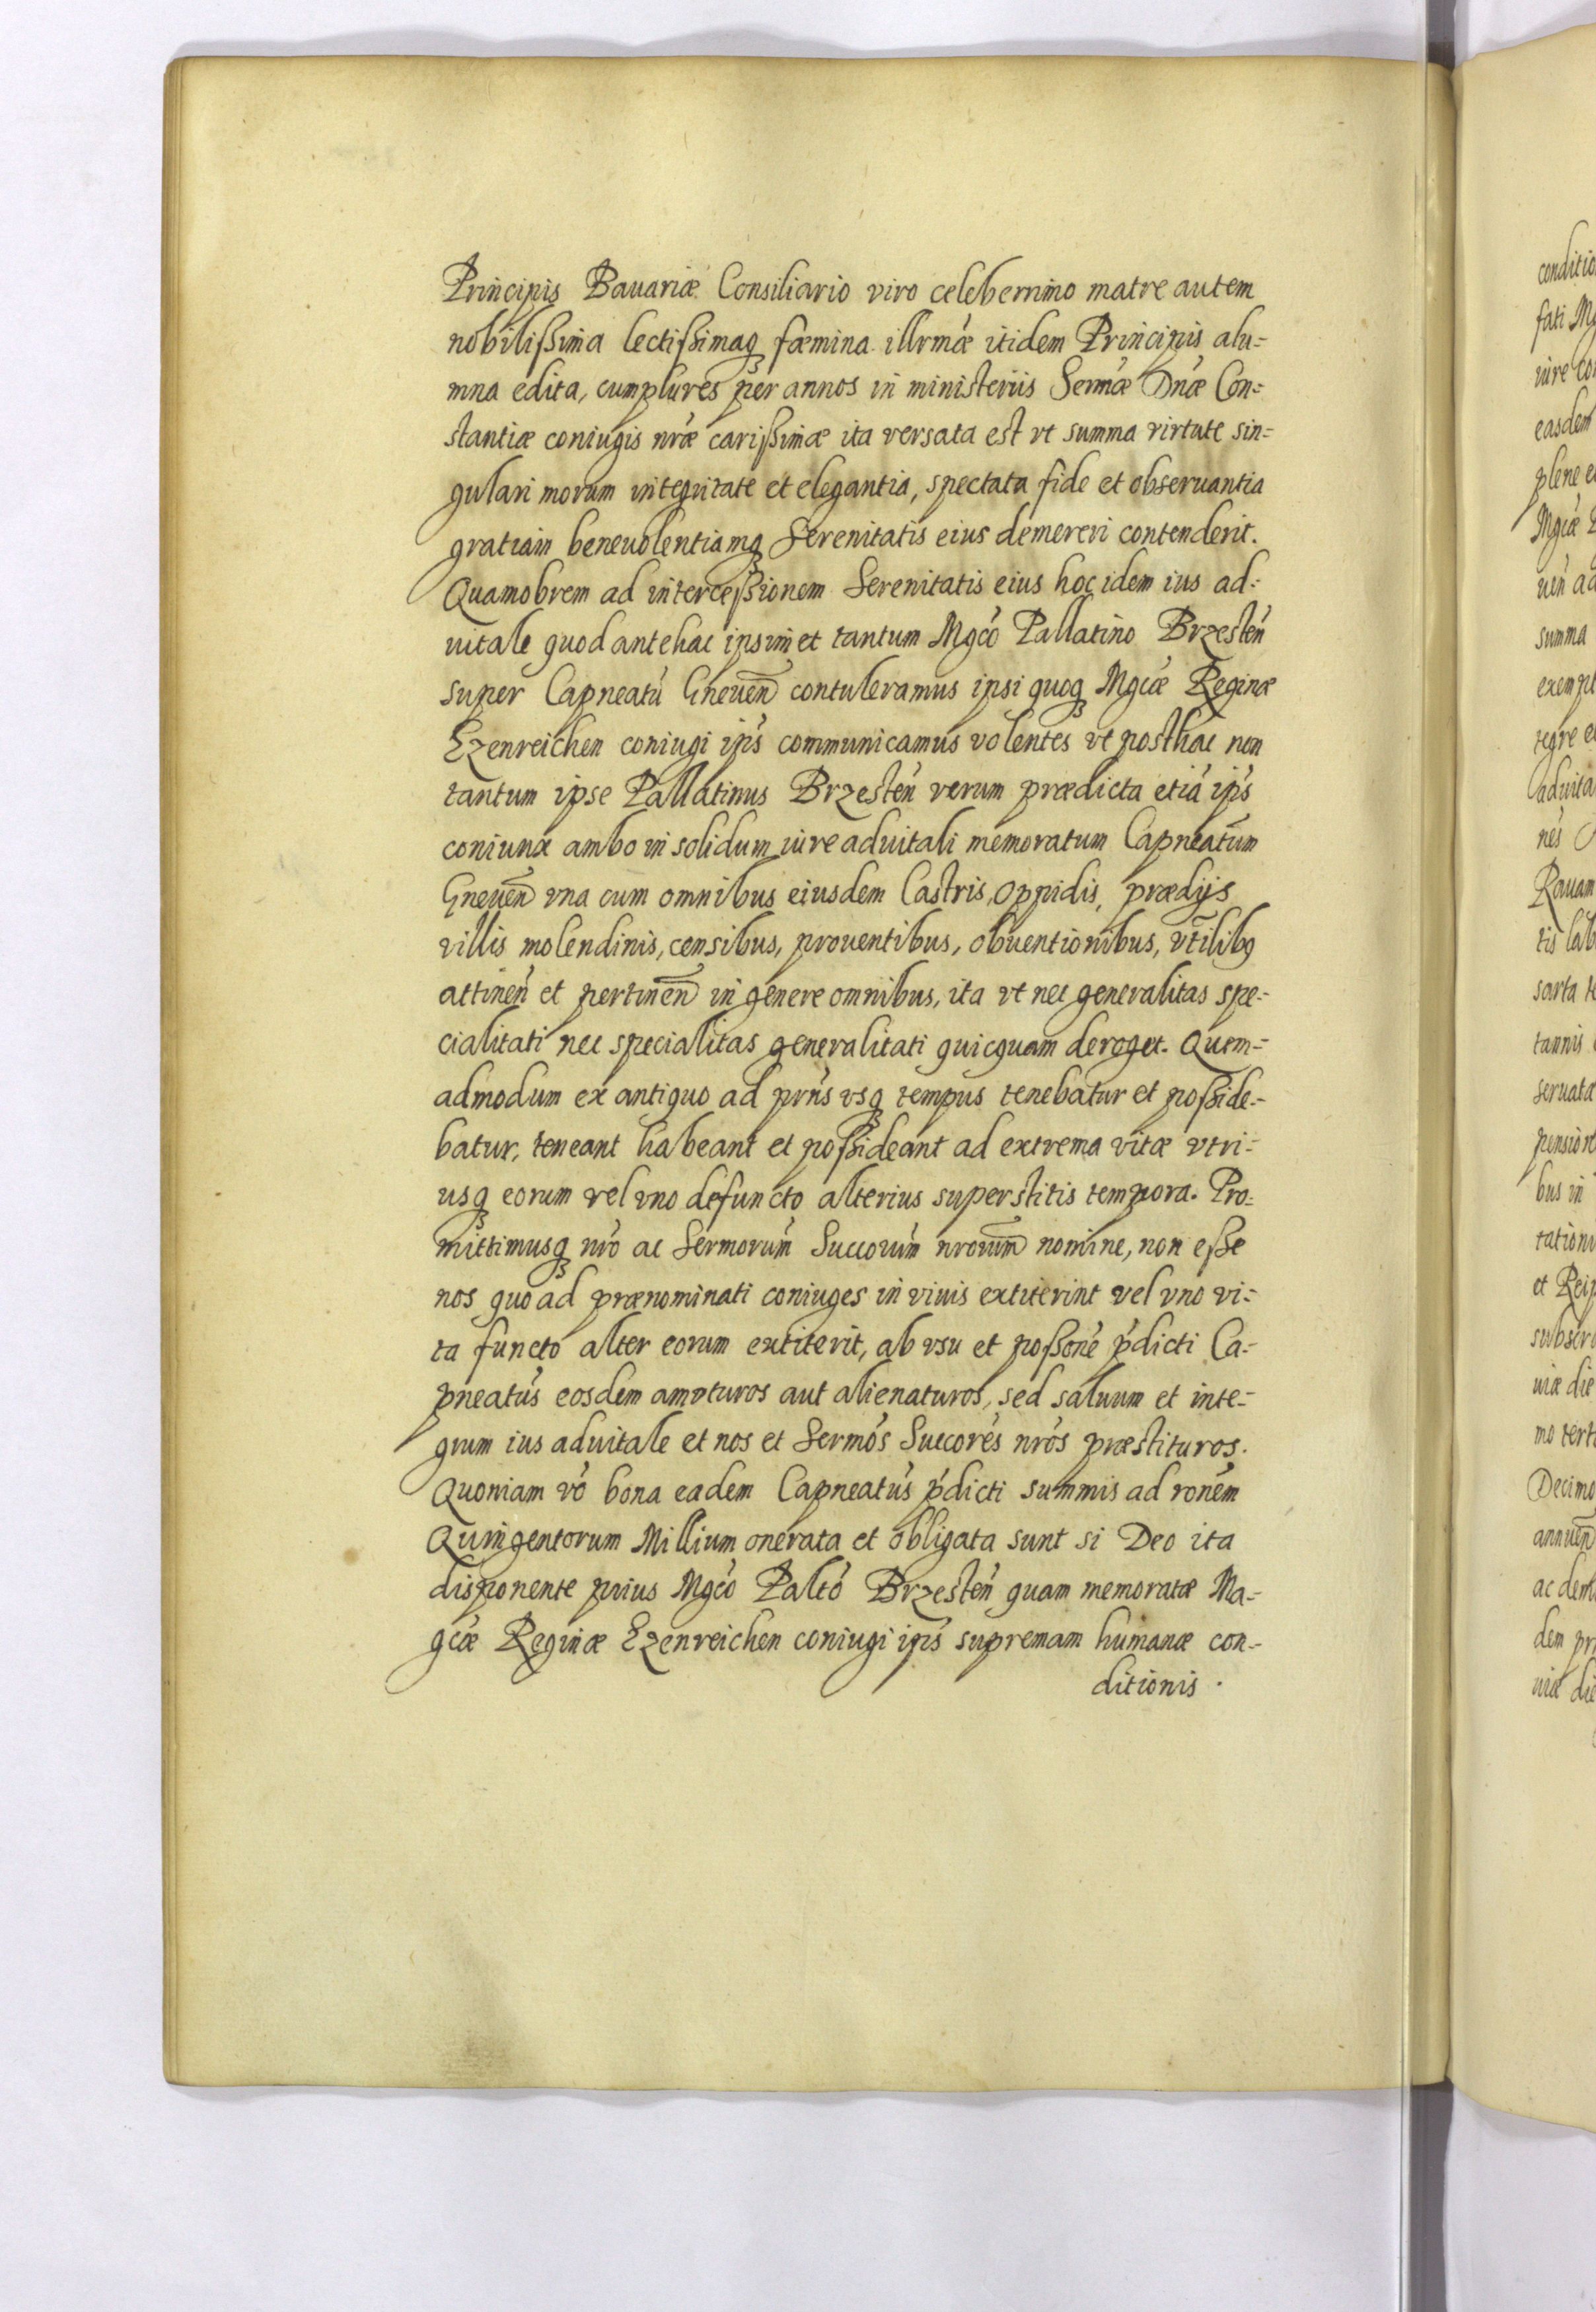 Principis Bauariæ Consiliario viro celeberrimo matre autem
nobilißima lectißimaq́ȝ fæmina illrmæ itidem Principis alu-
mna edita, cumplures per annos in ministeriis Sermæ Dnæ Con-
stantiæ coniugis nræ carißimæ ita versata est vt summa virtute sin-
gulari morum integritate et elegantia, spectata fide et obseruantia
gratiam beneuolentiamqȝ Serenitatis eius demereri contenderit.
Quamobrem ad interceßionem Serenitatis eius hoc idem ius ad-
uitale quod antehac ipsimet tantum Mgcó Pallatino Brzesteń
super Capneatú Gneueñ contuleramus ipsi quoqȝ Mgcæ Reginæ
Ezenreichen coniugi ipś communicamus volentes vt posthac non
tantum ipse Pallatinus Brzesteń verum prædicta etiá ipś
coniunx ambo in solidum iure aduitali memoratum Capneatum
Gneueñ vna cum omnibus eiusdem Castris, oppidis, prædijs
villis molendinis, censibus, prouentibus, obuentionibus, vtilibꝫ
attineń et pertineñ in genere omnibus, ita vt nec generalitas spe-
cialitati nec specialitas generalitati quicquam deroget. Quem-
admodum ex antiquo ad prńs vsqȝ tempus tenebatur et poßide-
batur, teneant habeant et poßideant ad extrema vitæ vtri-
usqȝ eorum vel vno defuncto alterius superstitis tempora. Pro-
mittimusqȝ nró ac Sermorum Succorum nrorum nomine, non eße
nos quoad prænominati coniuges in viuis extiterint vel vno vi-
ta functo alter eorum extiterit, ab vsu et poßoné ṕdicti Ca-
pneatus eosdem amoturos aut alienaturos, sed saluum et inte-
grum ius aduitale et nos et Sermós Succorés nrós præstituros.
Quoniam vó bona eadem Capneatús ṕdicti summis ad roném
Quingentorum Millium onerata et obligata sunt si Deo ita
disponente prius Mgcó Paltó Brzesteń quam memoratæ Ma-
gcæ Reginæ Ezenreichen coniugi ipś supremam humanæ con-
ditionis.
conditio
fati
iure
easdem
plene
Mgcæ
summa
exempt
aduita
sarta
tannis
seruata
bus in
et
uiæ die
Decimo
dem
uiæ die